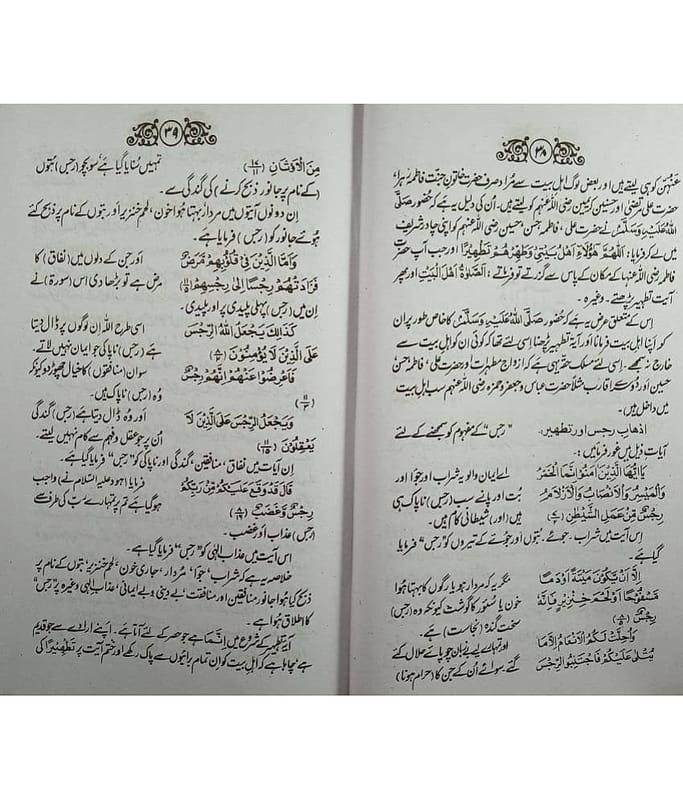 ۳۸
عنہن کو ہی لیتے ہیں اور بعض لوگ اہل بیت سے مراد صرف حضرت خاتون جنت فاطمہ زہرا،
حضرت علی مرتضیٰ اور حسنین کریمین رضی اللہ عنہم کو لیتے ہیں۔ ان کی دلیل یہ ہے کہ حضور صَلَّی
اللہُ عَلَیْہِ وَسَلَّمَ نے حضرت علی، فاطمہ، حسن، حسین رضی اللہ عنہم کو اپنی چادر شریف
میں لے کر فرمایا: اَللّٰهُمَّ هٰؤُلَاءِ اَهْلُ بَيْتِيْ وَطَهِّرْهُمْ تَطْهِيْرًا اور جب آپ حضرت
فاطمہ رضی اللہ عنہا کے مکان کے پاس سے گزرتے تو فرماتے: اَلصَّلٰوةُ اَهْلَ الْبَيْتِ اور پھر
آیت تطہیر پڑھتے۔ وغیرہ۔
اس کے متعلق عرض یہ ہے کہ حضور صَلَّی اللہُ عَلَیْہِ وَسَلَّمَ کا خاص طور پر ان
کو اپنا اہل بیت فرمانا اور آیہ تطہیر پڑھنا اسی لئے تھا کہ کوئی ان کو اہل بیت سے
خارج نہ سمجھے۔ اسی لئے مسلک حقہ یہی ہے کہ ازواج مطہرات اور حضرت علی، فاطمہ، حسن
حسین اور دوسرے اقارب مثلاً حضرت عباس و جعفر و حمزہ رضی اللہ عنہم سب اہل بیت
میں داخل ہیں۔
اذہاب رجس اور تطہیر۔ "رجس" کے مفہوم کو سمجھنے کے لئے
آیات ذیل میں غور فرمائیں:
يٰٓاَيُّهَا الَّذِيْنَ اٰمَنُوْا اِنَّمَا الْخَمْرُ اے ایمان والو یہ شراب اور جوا اور
وَالْمَيْسِرُ وَالْاَنْصَابُ وَالْاَزْلَامُ بت اور پانسے سب (رجس) ناپاک ہی
رِجْسٌ مِّنْ عَمَلِ الشَّيْطٰنِ ہیں (اور) شیطانی کام ہیں۔
اس آیت میں شراب۔ جوئے۔ بتوں اور جوئے کے تیروں کو "رجس" فرمایا
گیا ہے۔
اِلَّآ اَنْ يَّكُوْنَ مَيْتَةً اَوْ دَمًا مگر یہ کہ مردار ہو یا رگوں کا بہتا ہوا
مَّسْفُوْحًا اَوْ لَحْمَ خِنْزِيْرٍ فَاِنَّهٗ خون یا سئور کا گوشت کیونکہ وہ (رجس)
رِجْسٌ سخت گندہ (نجاست) ہے۔
وَاُحِلَّتْ لَكُمُ الْاَنْعَامُ اِلَّا مَا اور تمہارے لیے بے زبان چوپائے حلال کئے
يُتْلٰى عَلَيْكُمْ فَاجْتَنِبُوا الرِّجْسَ گئے۔ سوائے ان کے جن کا (حرام ہونا)
۳۹
مِنَ الْاَوْثَانِ تمہیں سنایا گیا ہے، سو بچو (رجس) بتوں
(کے نام پر جانور ذبح کرنے) کی گندگی سے۔
ان دونوں آیتوں میں مردار، بہتا ہوا خون، لحم خنزیر اور بتوں کے نام پر ذبح کئے
ہوئے جانور کو (رجس) فرمایا ہے۔
وَاَمَّا الَّذِيْنَ فِيْ قُلُوْبِهِمْ مَّرَضٌ اور جن کے دلوں میں (نفاق) کا
فَزَادَتْهُمْ رِجْسًا اِلٰى رِجْسِهِمْ مرض ہے تو بڑھا دی اس (سورۃ) نے
ان میں (رجس) پہلی پلیدی پر اور پلیدی۔
كَذٰلِكَ يَجْعَلُ اللّٰهُ الرِّجْسَ اسی طرح اللہ ان لوگوں پر ڈال دیتا
عَلَى الَّذِيْنَ لَا يُؤْمِنُوْنَ ہے (رجس) ناپاکی جو ایمان نہیں لاتے۔
فَاَعْرِضُوْا عَنْهُمْ اِنَّهُمْ رِجْسٌ سو ان (منافقوں) کا خیال چھوڑ دو کیونکہ
وہ (رجس) ناپاک ہیں۔
وَيَجْعَلُ الرِّجْسَ عَلَى الَّذِيْنَ لَا اور وہ ڈال دیتا ہے (رجس) گندگی
يَعْقِلُوْنَ ان پر جو عقل و فہم سے کام نہیں لیتے۔
ان آیات میں نفاق، منافقین، گندگی اور ناپاکی کو "رجس" فرمایا گیا ہے۔
قَالَ قَدْ وَقَعَ عَلَيْكُمْ مِّنْ رَّبِّكُمْ فرمایا (ہود علیہ السلام نے) واجب
رِجْسٌ وَّغَضَبٌ ہو گیا ہے تم پر تمہارے رب کی طرف سے
(رجس) عذاب اور غضب۔
اس آیت میں عذاب الٰہی کو "رجس" فرمایا گیا ہے۔
خلاصہ یہ ہے کہ شراب، جوا، مردار، جاری خون، لحم خنزیر، بتوں کے نام پر
ذبح کیا ہوا جانور منافقین اور منافقت، بے دینی و بے ایمانی، عذاب الٰہی وغیرہ پر "رجس"
کا اطلاق ہوا ہے۔
آیہ تطہیر کے شروع میں اِنَّمَا ہے جو حصر کے لئے آتا ہے۔ اپنے ارادے سے جو قدیم
ہے چاہا ہے کہ اہل بیت کو ان تمام برائیوں سے پاک رکھے اور ختم آیت پر تَطْهِيْرًا کی